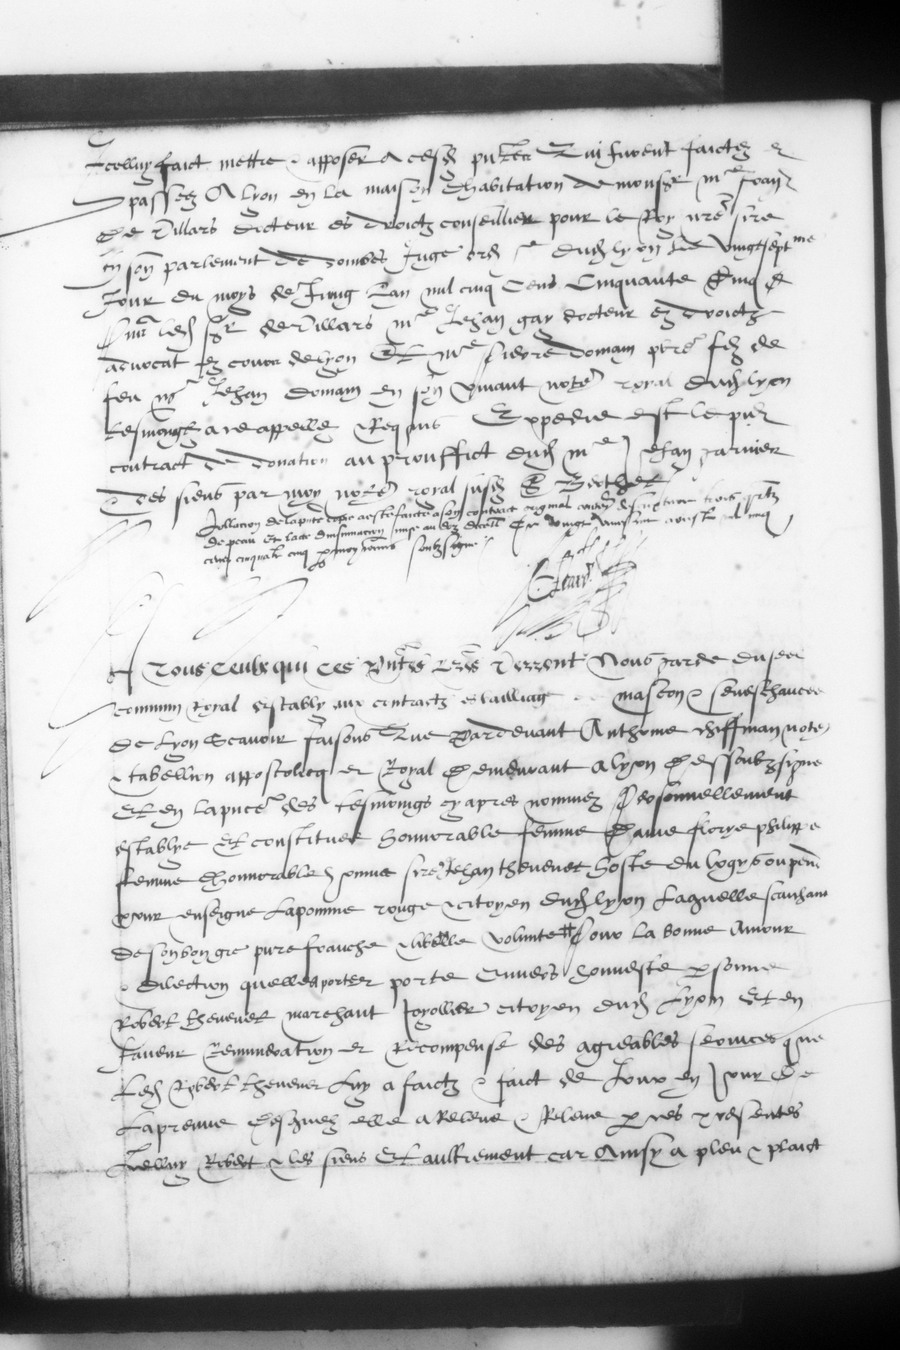 Icelluy faict mettre & apposer a cesd presentes Qui furent faictz et
passez A Lyon en la maison dhabitation de monsr me Jean
de Villars docteur es droictz conseillier pour le Roy nre sire
en son parlement de dombes Juge ord re dud lyon Le vingtseptme
Jour du moys de Juing Lan mil cinq Cens Cinquante Cinq Et
led sr de Villars me Jehan gay docteur ez droictz
advocat ez cours de lyon Et me pierre domain pbre filz de
feu me Jehan domain en son vivant notere royal dud lyon
tesmoings a ce appellez & Requis Expedie est le pnt
contract de donation au prouffict dud me Jehan
& des siens par moy notere royal susd
Collation de la pnte coppie a este faicte a son contract original
de peau et lacte dinsinuation mise au doz dicell
cens cinquante cinq par moy commis soubzsigne
A Tous Ceulx qui Ces pntes Lres Verront Nous garde du seel
commun Royal estably aux contractz & bailliage de mascon & seneschaucee
de Lyon Scavoir faisons Que Pardevant Anthoine notere
& tabellion appostolicq et Royal demeurant a lyon dessoubzsigne
Et en la pnce des tesmoings cy apres nommez personnellement
establye Et constituee honnorable femme dame florye philippe
femme dhonnorable homme sire Jehan thevenet hoste du logys ou pend
pour enseigne La pomme rouge & citoyen dud lyon Laquelle scaichant
de son bon gre pure franche & libelle volunte Pour la bonne Amour
& dilection quelle a porter porte Envers honneste personne
Robert thevenet marchant Joyollier citoyen dud Lyon Et en
faveur Remuneration et Recompense des agreables services que
Led Robert thevenet Luy a faictz & faict de Jour en Jour De
La preuve desquelz elle a Releve & Releve par ces presentes
Icelluy Robert & les siens Et aultrement car Ainsy a pleu & plaict